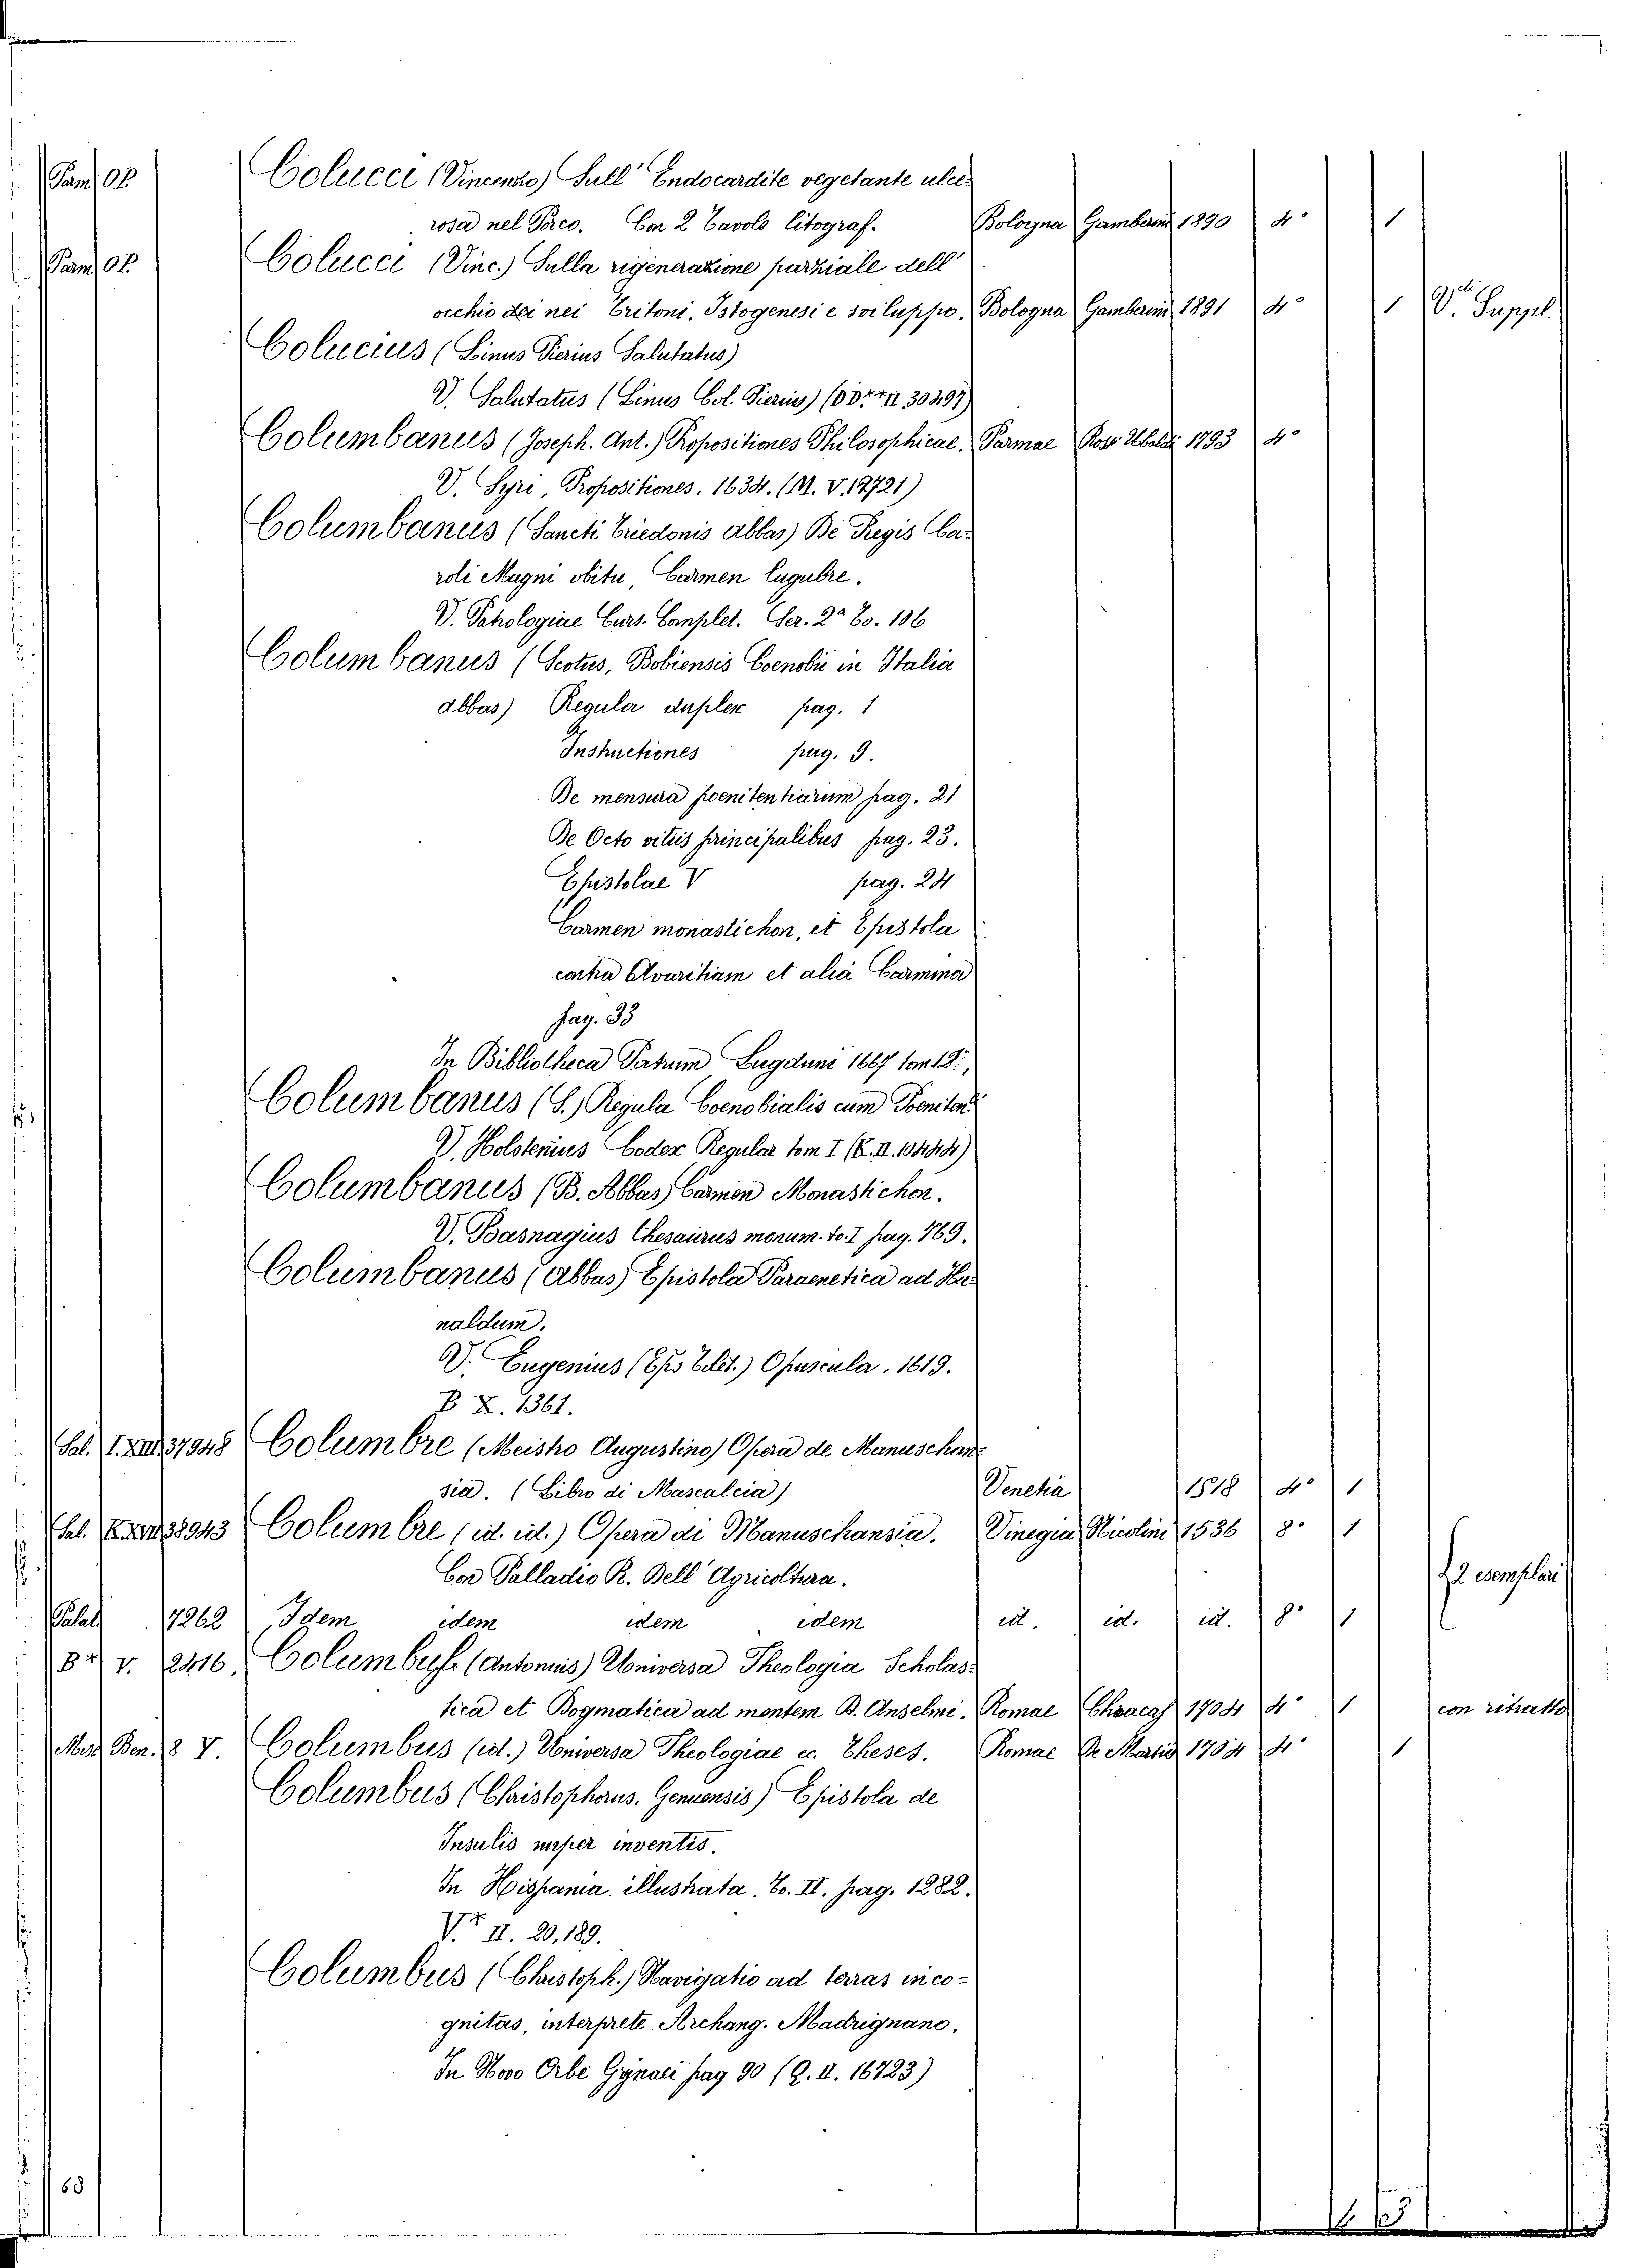 Pam. Op. Colucci (Vincenzo) Sull' Endocardite vegetante ulce-
rosa nel Porco. Con 2 Tavole litograf. Bologna Gamberini 1890 4° 1
Pam. Op. Colucci (Vinc.) Sulla rigenerazione parziale dell'
occhio dei nei Tritoni. Istogenesi e sviluppo. Bologna Gamberini 1891 4° 1 V. Suppl.
Colucius (Linus Pierius Salutatus)
V. Salutatus (Linus Col. Pierius) (DD** II. 30497)
Columbanus (Joseph. Ant.) Propositiones Philosophicae. Parmae Ross Ubaldi 1793 4°
V. Syri, Propositiones. 1634. (M. V. 12721)
Columbanus (Sancti Trudonis abbas) De Regis Ca-
roli Magni obitu, Carmen lugubre.
V. Patrologiae Curs. Complet. Ser. 2ª To. 106
Columbanus (Scotus, Bobiensis Coenobii in Italia
abbas) Regula duplex pag. 1
Instructiones pag. 9.
De mensura poenitentiarum pag. 21
De Octo vitiis principalibus pag. 23.
Epistolae V pag. 24
Carmen monastichon, et Epistola
contra Avaritiam et alia Carmina
pag. 33
In Bibliotheca Patrum Lugduni 1667 tom 12.
Columbanus (S.) Regula Coenobialis cum Poenitent.
V. Holstenius Codex Regular tom I (E. II. 10444)
Columbanus (B. Abbas) Carmen Monastichon.
V. Basnagius Thesaurus monum. to. I pag. 769.
Columbanus (Abbas) Epistola Paraenetica ad Hu-
naldum.
V. Eugenius (Eps Tolet.) Opuscula. 1619.
B X. 1361.
Sal. I. XIII. 37948 Columbre (Meistro Augustino) Opera de Manuschan-
sia. (Libro di Mascalcia) Venetia 1518 4° 1
Sal. 38943 Columbre (id. id.) Opera di Manuschansia. Vinegia Nicolini 1536 8° 1
Con Palladio R. Dell' Agricoltura. 2 esemplari
Palat 7262 Idem idem idem idem id. id. id. 8° 1
B** V. 2416. Columbus (Antonius) Universa Theologia Scholas-
tica et Dogmatica ad mentem B. Anselmi. Romae Chracas 1704 4° 1 con ritratto
Misc. Ben. 8 V. Columbus (id.) Universa Theologiae ec. Theses. Romae De Martiis 1704 4° 1
Columbus (Christophorus. Genuensis) Epistola de
Insulis nuper inventis.
In Hispania illustrata. To. II. pag. 1282.
V.* II. 20,189.
Columbus (Christoph.) Navigatio ad terras inco-
gnitas, interprete Archang. Madrignano.
In Novo Orbe Grynaei pag 90 (Q. II. 16723)
63